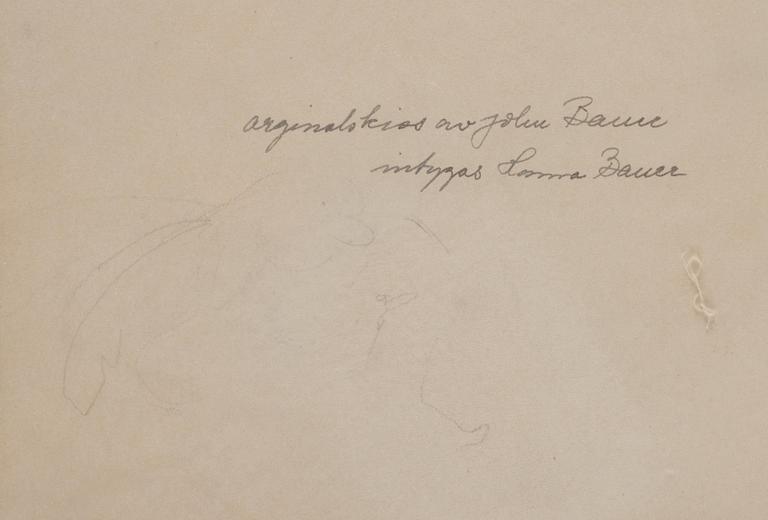 arginalskiss av John Bauer
intygas Hanna Bauer